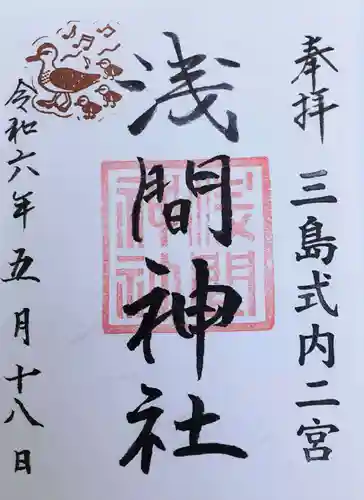 奉拝
三島式内二宮
浅間神社
浅間神社
令和六年五月十八日